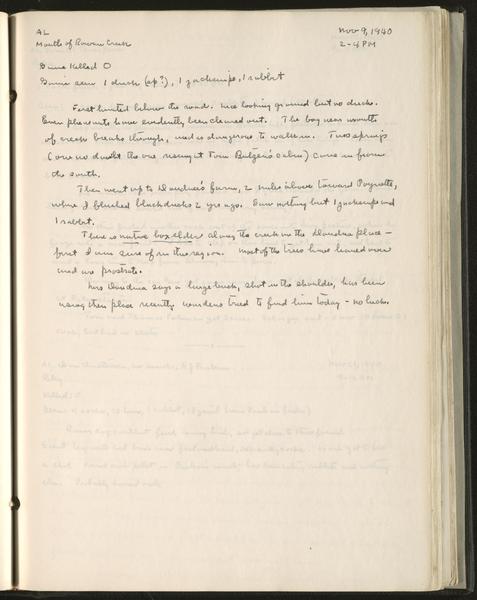 AL
Nov 9, 1940
Mouth of Rowan Creek
2-4 PM
Game Killed 0
Game seen 1 duck (sp?), 1 jacksnipe, 1 rabbit
First hunted below the road. Nice looking ground but no ducks.
Even pheasants have evidently been cleaned out. The bog near mouth
of creek breaks through, and is dangerous to walk in. Two springs
(one no doubt the one rising at Tom Butger's cabin) come in from
the south.
Then went up to Daudna's farm, 2 miles above toward Poynette,
where I flushed black ducks 2 yrs ago. Saw nothing but 1 jacksnipe and
1 rabbit.
There is native box elder along the creek on the Daudna place -
first I am sure of in this region. Most of the trees have leaned over
and are prostrate.
Mrs Daudna says a large buck, shot in the shoulder, has been
using their place recently. Wardens tried to find him today - no luck.